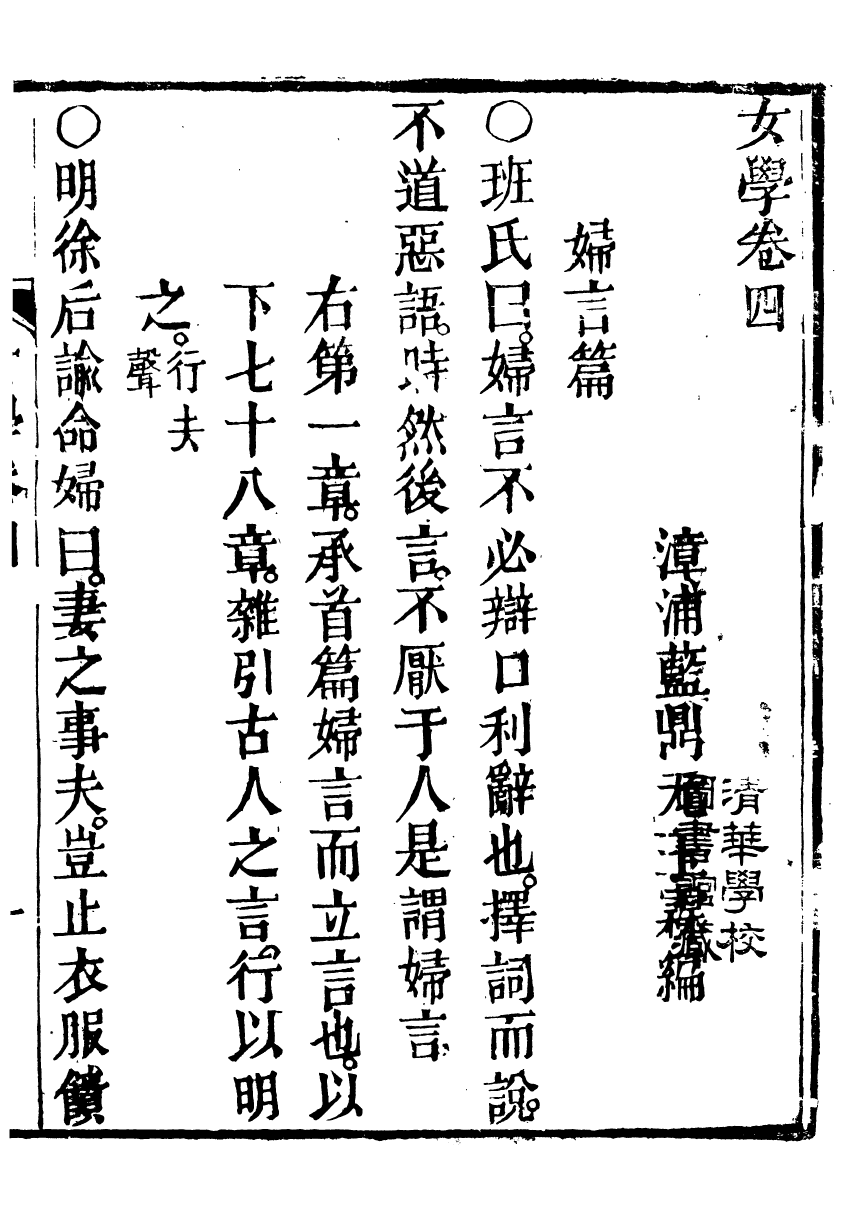 女學卷四
漳浦藍鼎元 編
清華學校
圖書館藏
婦言篇
○班氏曰。婦言不必辯口利辭也。擇詞而說。
不道惡語。時然後言。不厭于人是謂婦言
右第一章。承首篇婦言而立言也。以
下七十八章。雜引古人之言。行以明
之。行夫聲
○明徐后諭命婦曰。妻之事夫。豈止衣服饋